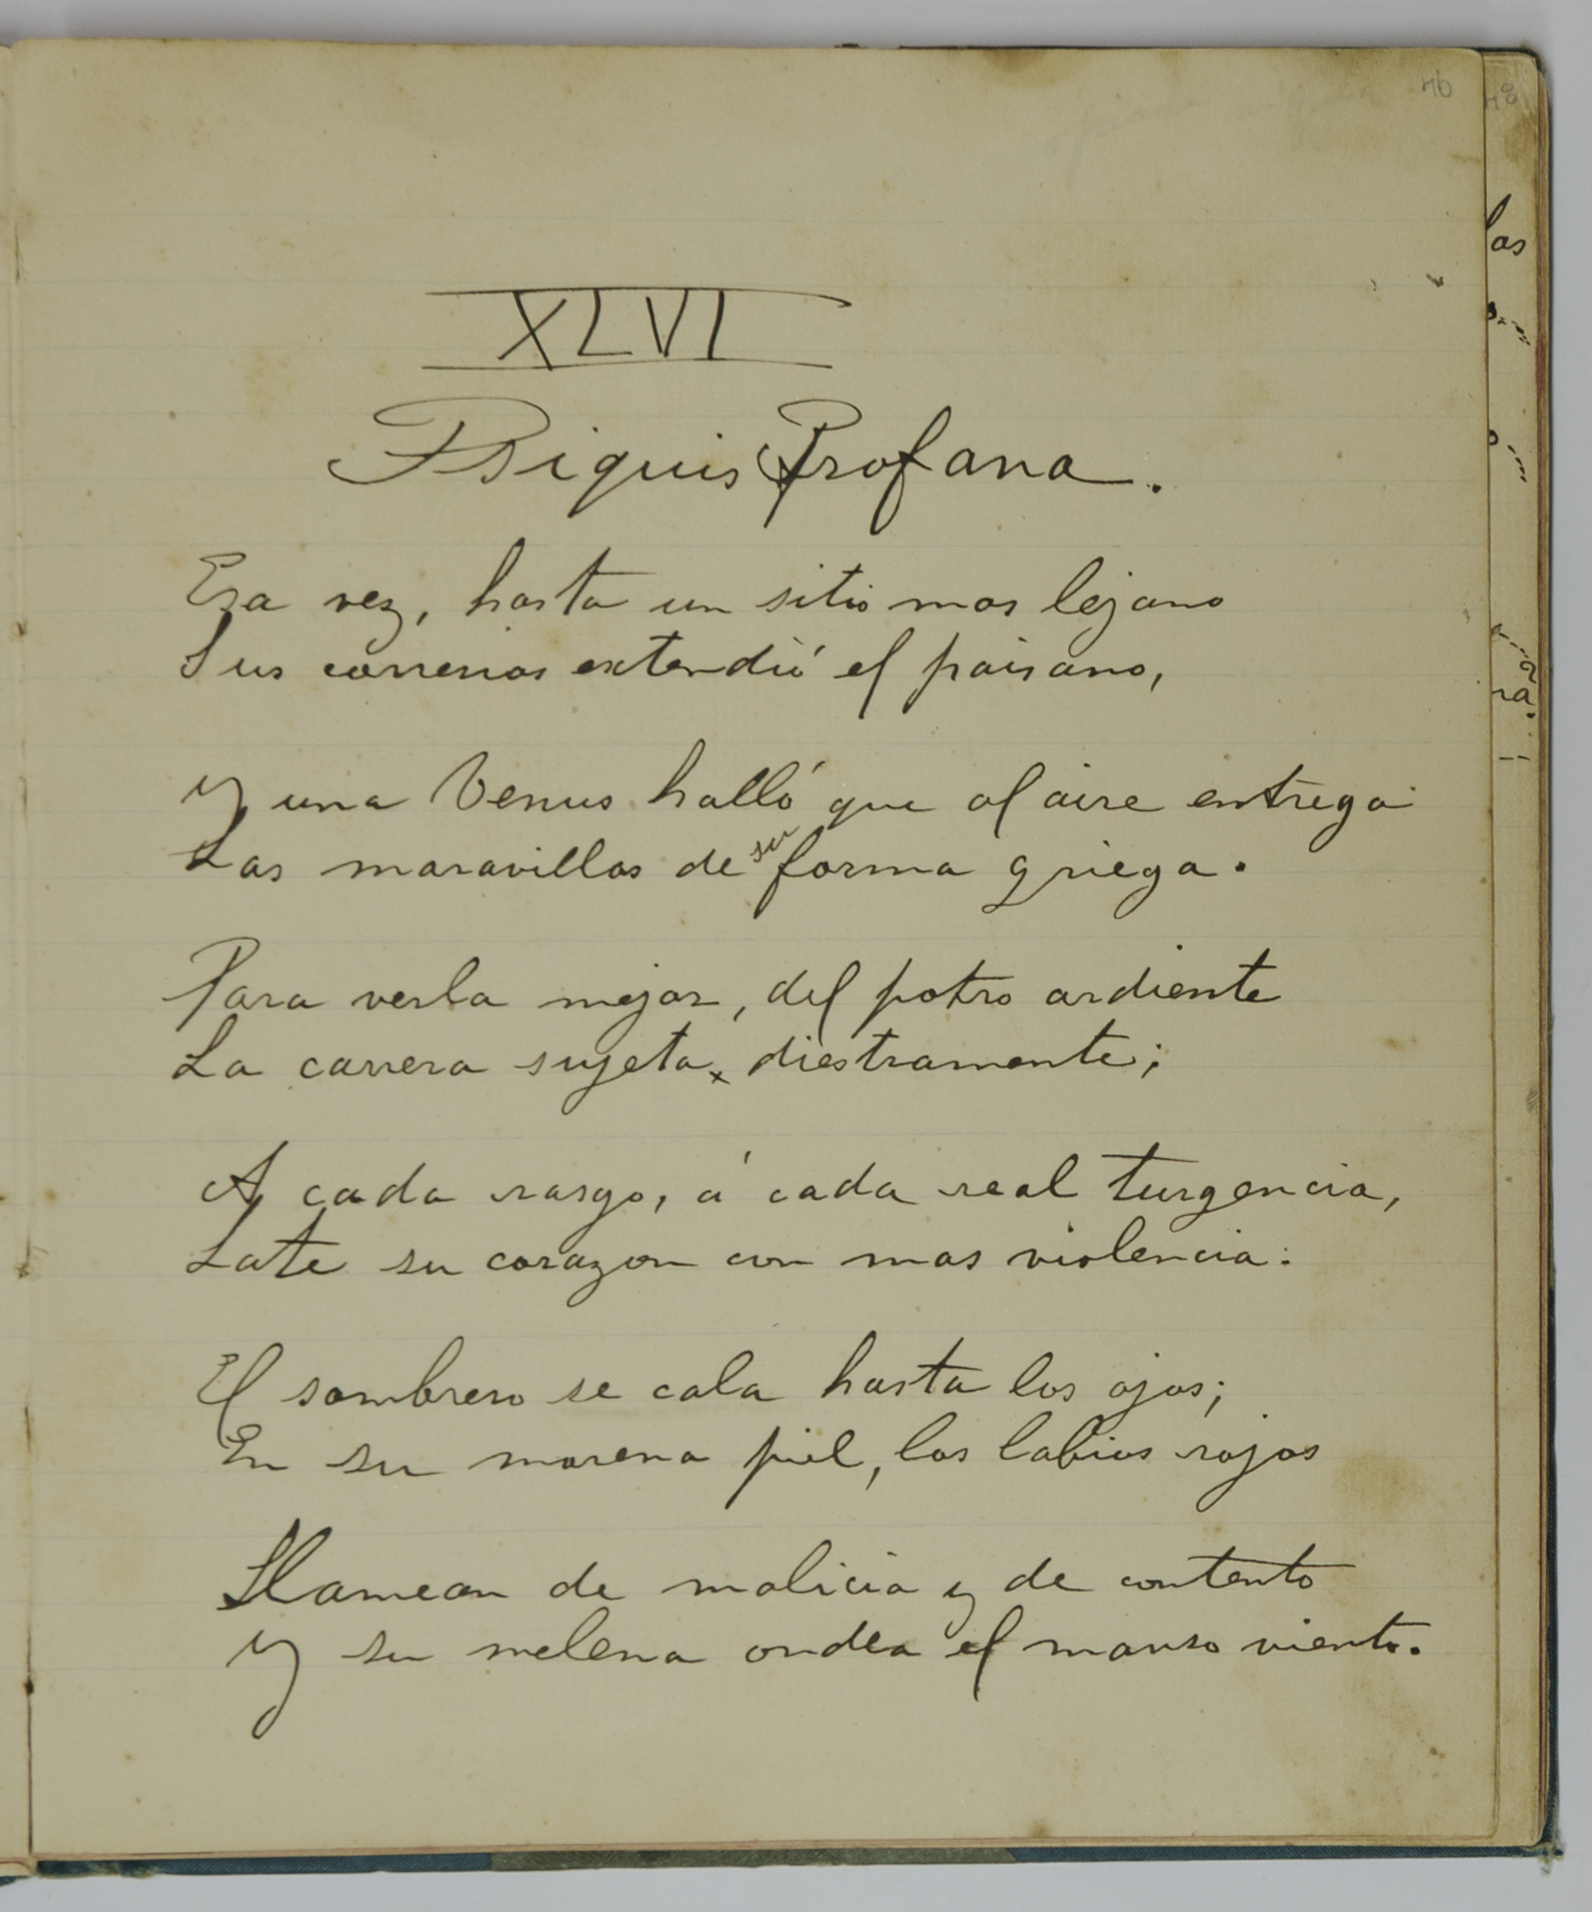 76
XLVI
Psiquis Profana.
Esa vez, hasta un sitio mas lejano
Sus correrias extendió el paisano,
Y una Venus halló que al aire entrega
Las maravillas de su forma griega.
Para verla mejor, del potro ardiente
La carrera sujeta diestramente;
A cada rasgo, á cada real turgencia,
Late su corazon con mas violencia:
El sombrero se cala hasta los ojos;
En su morena piel, los labios rojos
Llamean de malicia y de contento
Y su melena ondea el manso viento.
78
las